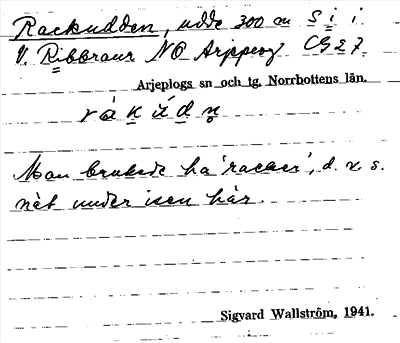 Rackudden, udde 300 m S i i.
V. Ribbraur NO Arjeplog C9 27.
Arjeplogs sn och tg. Norrbottens län.
råkúdn̥
Man brukade ha 'racker', d. v. s.
nät under isen här.
Sigvard Wallström, 1941.